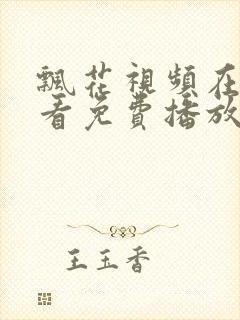 飄花視頻在
看免費播放
王玉香